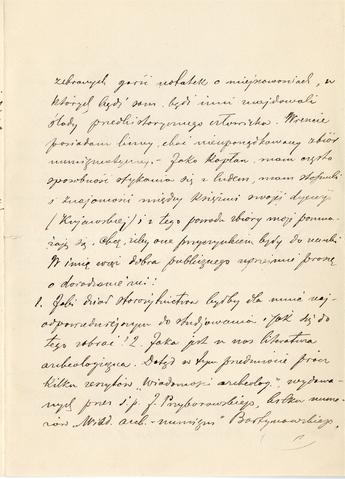 zebranych garść notatek o miejscowościach, w
których bądź sam, bądź inni znajdowali
ślady przedhistorycznego człowieka. Wreszcie
posiadam liczny, choć nieuporządkowany zbiór
numizmatyczny. – Jako kapłan, mam częstą
sposobność stykania się z ludem, mam stosunki
i znajomości między księżmi swojej dyecezji
(Kujawskiej) i z tego powodu zbiory moje pomna-
żają się. Chcę, żeby one przyczynkiem były do nauki
W imię więc dobra publicznego uprzejmie proszę
o doradzenie mi:
1. Jaki dział starożytnictwa byłby dla mnie naj-
odpowiedniejszym do studjowania i jak się do
tego zabrać? 2. Jaka jest u nas literatura
archeologiczna. Dotąd w tym przedmiocie prócz
kilku zeszytów "Wiadomości archeolog." wydawa-
nych przez ś.p. J. Przyborowskiego, kilku nume-
rów „Wiad. arch.-numizm" Bartynowskiego,